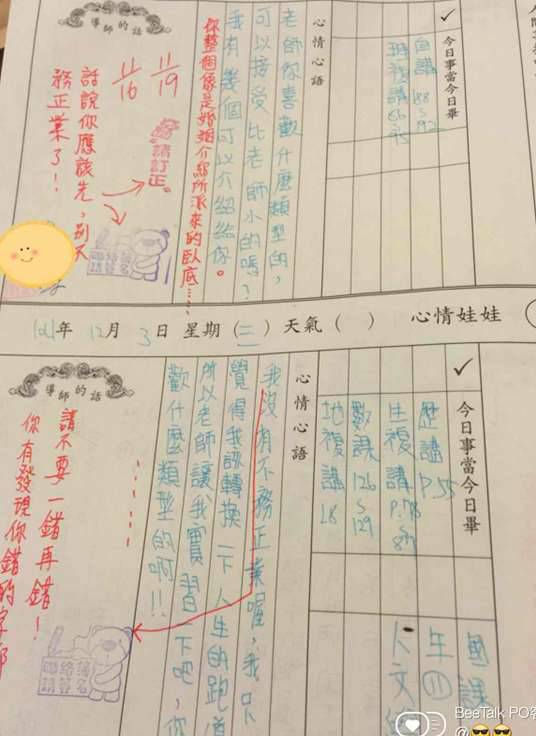 ✓
今日事當今日畢
自講 88~92
班複講 66 95
心情心語
老師你喜歡什麼類型的,
可以接受比老師小的嗎?
我有幾個可以介紹給你。
你整個像是婚姻介紹所派來的臥底……
導師的話
11/19
11/16
請訂正。
話說你應該先,別不
務正業了!
聯絡簿
請簽名
121年 12月 3日 星期(二) 天氣( ) 心情娃娃
✓
今日事當今日畢
歷講 P.55
生複講 P.78
數課 126~129
地複講 18
國課
年⑪
心情心語
我沒有不務正業喔,我只
覺得我該轉換一下人生的跑道
所以老師讓我實習一下吧,你
歡什麼類型的啊!!
導師的話
請不要一錯再錯!
你有發現你錯的字
聯絡簿
請簽名
BeeTalk PO